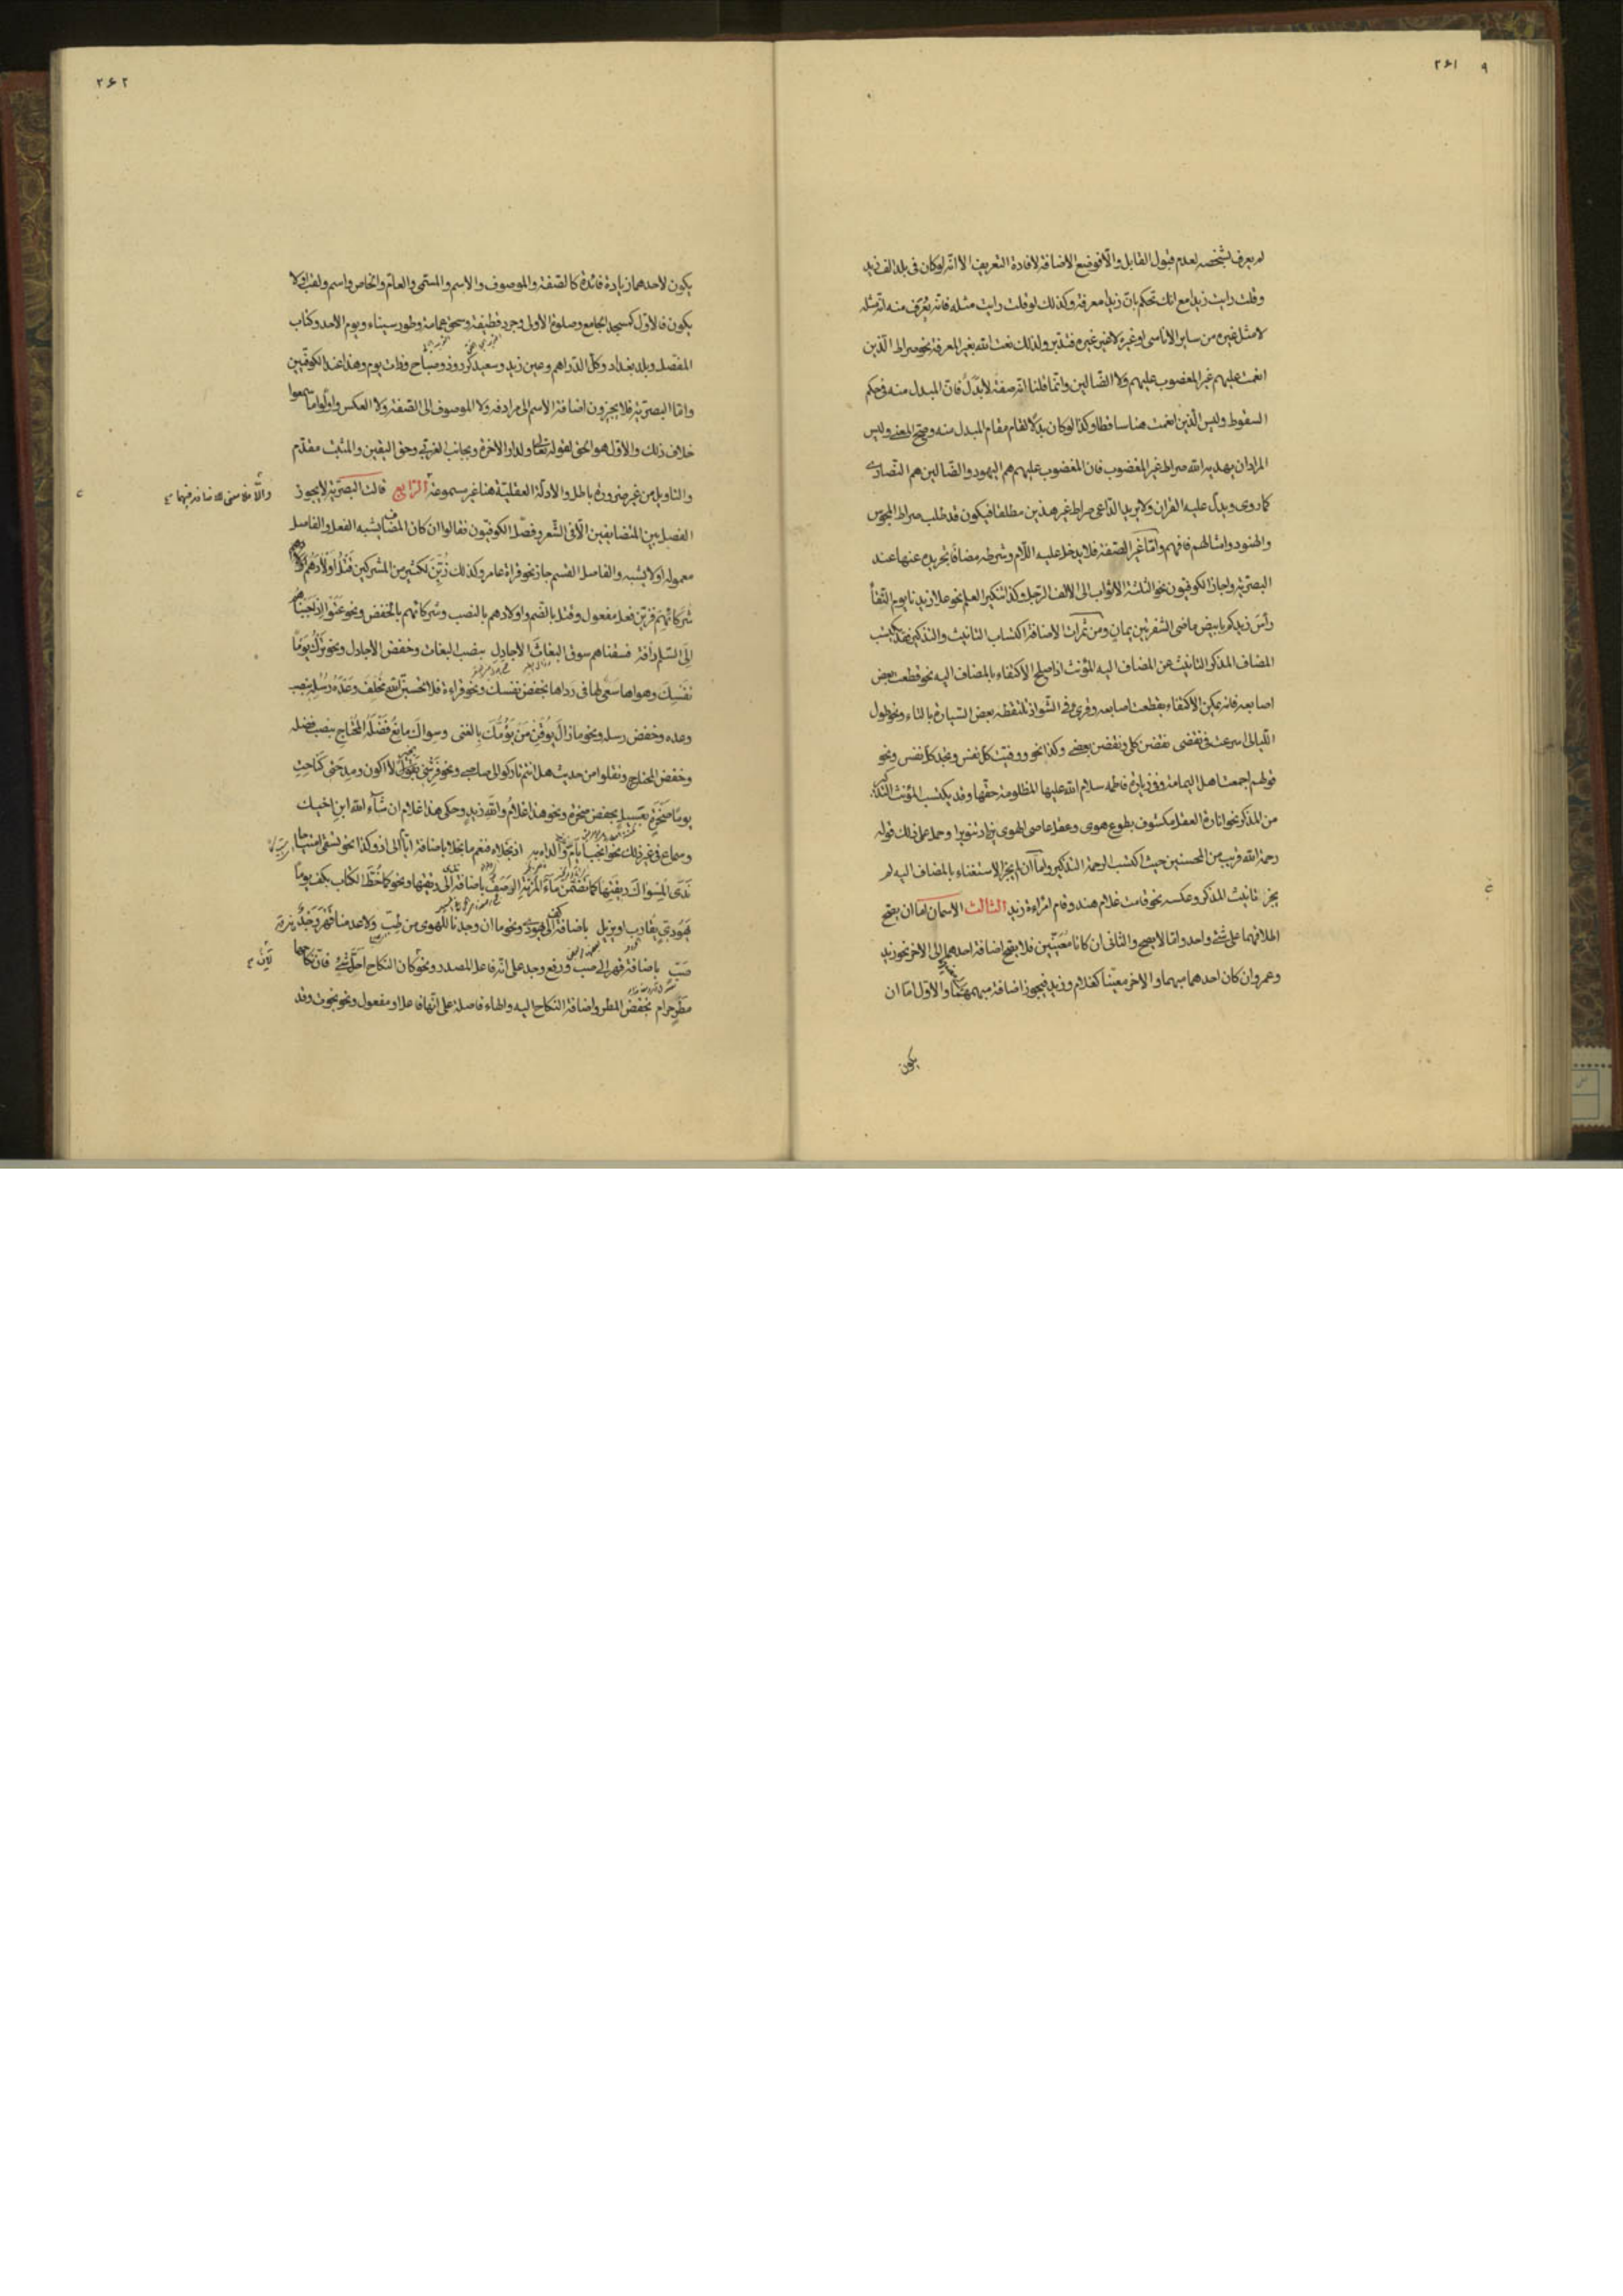 ٢٦١ ٩
لم يعرف بشخصه لعدم قبول القابل والّا فوضع الاضافة لافادة التعريف الا انه لو كان فى بلد الف زيد
وقلت رايت زيدا مع انك تحكم بان زيدا معرفة وكذلك لو قلت رايت مثله فانه يعرف منه انه مثله
لا مثل غيره من ساير الاناسى او غيره لا غير غيره فتدبر ولذلك نعت الله بغير المعرفة نحو صراط الّذين
انعمت عليهم غير المغضوب عليهم ولا الضالين وانما قلنا انه صفة لا بدل فان المبدل منه فى حكم
السقوط وليس الّذين انعمت هنا ساقطا وكذا لو كان بدلا لقام مقام المبدل منه وصح المعنى وليس
المراد ان يهديه الله صراط غير المغضوب فان المغضوب عليهم هم اليهود والضالين هم النصارى
كما روى ويدل عليه القران ولا يريد الداعى صراط غير هذين مطلقا فيكون قد طلب صراط المجوس
والهنود وامثالهم فافهم وامّا غير الصفة فلا يدخل عليه اللّام وشرطه مضافا تجريده عنها عند
البصرية واجاز الكوفيون نحو الثلثة الاثواب الى الالف الرجل وكذا تنكير العلم نحو علا زيدنا يوم النقا
رأس زيدكم بابيض ماضى الشفرتين يمان ومن ثمرات الاضافة اكتساب التانيث والتذكير فقد يكتسب
المضاف المذكر التانيث من المضاف اليه المؤنث اذا صلح الاكتفاء بالمضاف اليه نحو قطعت بعض
اصابعه فانه يمكن الاكتفاء بقطعت اصابعه وقرئ فى الشواذ تلتقطه بعض السيارة بالتاء ونحو طول
الليالى اسرعت فى نقضى نقضن كلى ونقضن بعضى وكذا نحو ووفيت كل نفس وتجد كل نفس ونحو
قولهم اجمعت اهل اليمامة وفى زيارة فاطمه سلام الله عليها المظلومة حقها وقد يكتسب المؤنث التذكير
من المذكر نحو انارة العقل مكسوف بطوع هوى وعقل عاصى الهوى يزداد تنويرا وحمل على ذلك قوله
رحمة الله قريب من المحسنين حيث اكتسب الرحمة التذكير واما ان لم يجز الاستغناء بالمضاف اليه لم
يجز تانيث المذكر وعكسه نحو قامت غلام هند وقام امراءة زيد الثالث الاسمان اما ان يصح
اطلاقهما على شئ واحد واما لا يصح والثانى ان كانا معينين فلا يصح اضافة احدهما الى الاخر نحو زيد
وعمرو وان كان احدهما مبهما والاخر معيّنا كغلام وزيد فيجوز اضافة مبهمهما والاول اما ان
يكون
٢٦٢
يكون لاحدهما زيادة فائدة كالصفة والموصوف والاسم والمسمى والعام والخاص واسم ولقب او لا
يكون فالاول كمسجد الجامع وصلوة الاولى وجرد قطيفة وسحق عمامة وطور سيناء ويوم الاحد وكتاب
المفصل وبلد بغداد وكل الدراهم وعين زيد وسعيد كرز وذو صباح وذات يوم وهذا عند الكوفيين
وامّا البصرية فلا يجيزون اضافة الاسم الى مرادفه ولا الموصوف الى الصفة ولا العكس واوّلوا ما سمعوا
خلاف ذلك والاول هو الحق لقوله تعالى ولدار الاخرة وبجانب الغربى وحق اليقين والمثبت مقدم
والتاويل من غير ضرورة باطل والادلة العقلية هنا غير مسموعة الرابع قالت البصرية لا يجوز
الفصل بين المتضايفين الّا فى الشعر وفصّل الكوفيون فقالوا ان كان المضاف يشبه الفعل والفاصل
معموله او لا يشبه والفاصل القسم جاز نحو قراءة عامر وكذلك زُيّن لكثير من المشركين قتلُ اولادَهم
شركائِهم فزين فعل مفعول وقتل بالضم واولادهم بالنصب وشركائهم بالخفض ونحو عتوا اذ اجبناهم
الى السلم رأفة فسقناهم سوق البغاثَ الاجادِل بنصب البغاث وخفض الاجادل ونحو ترك يوما
نفسِك وهواها سعى لها فى رداها بخفض نفسك ونحو قراءة فلا تحسبنّ الله مخلف وعدَه رسلِه بنصب
وعده وخفض رسله ونحو ما زال يوقن من يؤمّك بالغنى وسواك مانع فضلَه المحتاج بنصب فضله
وخفض المحتاج ونقلوا من حديث هل انتم تاركوا لى صاحبى ونحو فرشنى بخير لا اكون ومدحتى كناحت
يوما صخرة بعسيل بخفض صخرة ونحو هذا غلام والله زيد وحكى هذا غلام ان شاء الله ابن اخيك
وسماع فى غير ذلك نحو انجب ايام والداه به اذ نجلاه فنعم ما نجلا باضافة ايام الى اذ وكذا نحو تسقى امتياحا
ندى المسواك ريقتها كما تضمن ماء المزنة الرصف باضافة ندى الى ريقتها ونحو كما خط الكتاب بكف يوما
يهودى يقارب او يزيل باضافة كف الى يهودى ونحو ما ان وجدنا للهوى من طب ولا عدمنا قهر وجد
صب باضافة قهر الى صب ورفع وجد على انه فاعل المصدر ونحو لئن كان النكاح احل شئ فان نكاحها
مطرٍ حرام بخفض المطر واضافة النكاح اليه والهاء فاصلة على انها فاعل او مفعول ونحو نجوت وقد